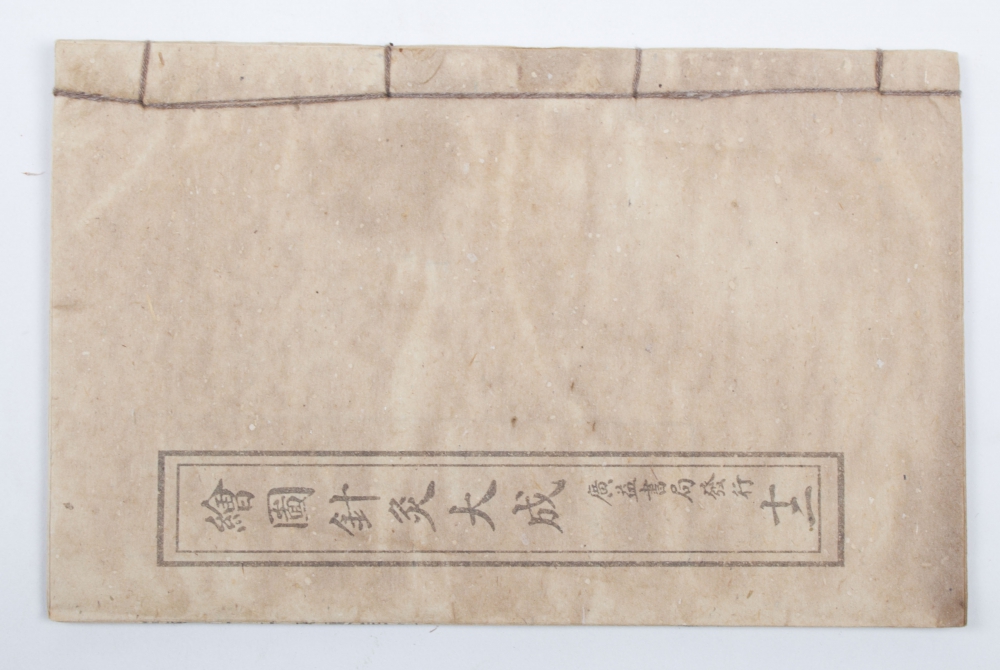 繪圖針灸大成
廣益書局發行
十二